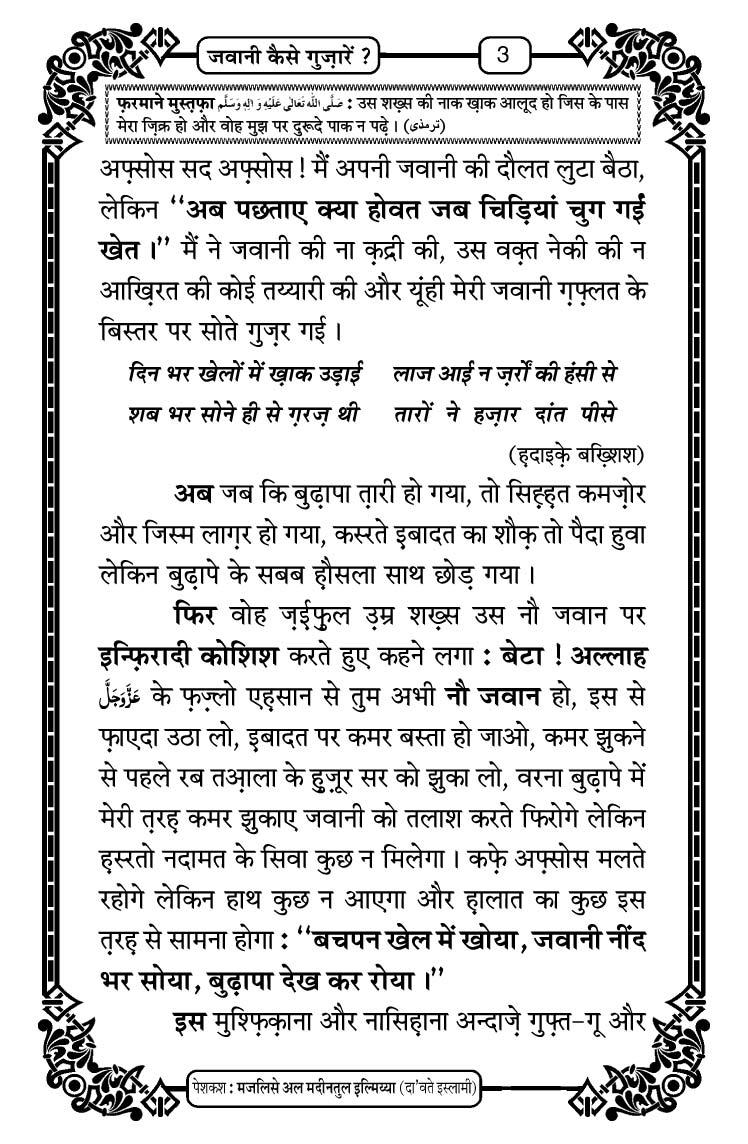 जवानी कैसे गुज़ारें ?
3
फ़रमाने मुस्त़फ़ा صَلَّى اللّٰهُ تَعَالٰى عَلَيْهِ وَاٰلِهٖ وَسَلَّم : उस शख़्स की नाक ख़ाक आलूद हो जिस के पास
मेरा ज़िक्र हो और वोह मुझ पर दुरूदे पाक न पढ़े । (ترمذی)
अफ़्सोस सद अफ़्सोस ! मैं अपनी जवानी की दौलत लुटा बैठा,
लेकिन ‘‘अब पछताए क्या होवत जब चिड़ियां चुग गईं
खेत ।’’ मैं ने जवानी की ना क़द्री की, उस वक़्त नेकी की न
आख़िरत की कोई तय्यारी की और यूंही मेरी जवानी ग़फ़्लत के
बिस्तर पर सोते गुज़र गई ।
दिन भर खेलों में ख़ाक उड़ाई लाज आई न ज़र्रों की हंसी से
शब भर सोने ही से ग़रज़ थी तारों ने हज़ार दांत पीसे
(ह़दाइक़े बख़्शिश)
अब जब कि बुढ़ापा त़ारी हो गया, तो सिह़्ह़त कमज़ोर
और जिस्म लाग़र हो गया, कस्रते इ़बादत का शौक़ तो पैदा हुवा
लेकिन बुढ़ापे के सबब ह़ौसला साथ छोड़ गया ।
फिर वोह ज़ई़फ़ुल उ़म्र शख़्स उस नौ जवान पर
इन्फ़िरादी कोशिश करते हुए कहने लगा : बेटा ! अल्लाह
عَزَّوَجَلَّ के फ़ज़्लो एह़सान से तुम अभी नौ जवान हो, इस से
फ़ाएदा उठा लो, इ़बादत पर कमर बस्ता हो जाओ, कमर झुकने
से पहले रब तआ़ला के हु़ज़ूर सर को झुका लो, वरना बुढ़ापे में
मेरी त़रह़ कमर झुकाए जवानी को तलाश करते फिरोगे लेकिन
ह़स्रतो नदामत के सिवा कुछ न मिलेगा । कफ़े अफ़्सोस मलते
रहोगे लेकिन हाथ कुछ न आएगा और ह़ालात का कुछ इस
त़रह़ से सामना होगा : ‘‘बचपन खेल में खोया, जवानी नींद
भर सोया, बुढ़ापा देख कर रोया ।’’
इस मुश्फ़िक़ाना और नासिह़ाना अन्दाज़े गुफ़्त-गू और
पेशकश : मजलिसे अल मदीनतुल इ़ल्मिय्या (दा'वते इस्लामी)